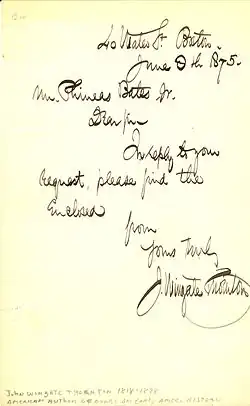 40 States St. Boston.
June 9th 1875.
Mr. Phineas Bates Jr.
Dear Sir
In reply to your
request, please find the
Enclosed
from
Yours truly
J. Wingate Thornton
John Wingate Thornton 1818-1878
American author of books on early Amer. history